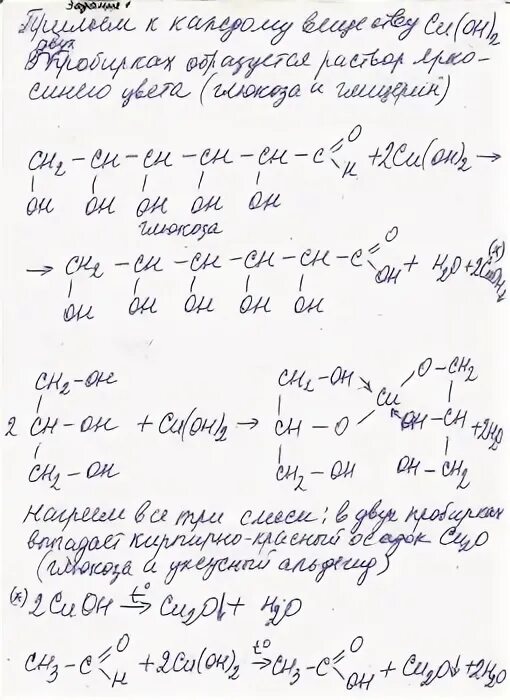 Задание 1
Прильем к каждому веществу Cu(OH)2
В двух пробирках образуется раствор ярко-
синего цвета (глюкоза и глицерин)
CH2 – CH – CH – CH – CH – C =O H + 2Cu(OH)2 →
OH OH OH OH OH
глюкоза
→ CH2 – CH – CH – CH – CH – C =O OH + H2O + 2CuOH↓ (x)
OH OH OH OH OH
CH2–OH CH2–OH O–CH2
2 CH–OH + Cu(OH)2 → CH – O Cu OH–CH + 2H2O
CH2–OH CH2–OH OH–CH2
Нагреем все три смеси: в двух пробирках
выпадает кирпично-красный осадок Cu2O
(глюкоза и уксусный альдегид)
(x) 2CuOH t°→ Cu2O↓ + H2O
CH3–C =O H + 2Cu(OH)2 t°→ CH3–C =O OH + Cu2O↓ + 2H2O